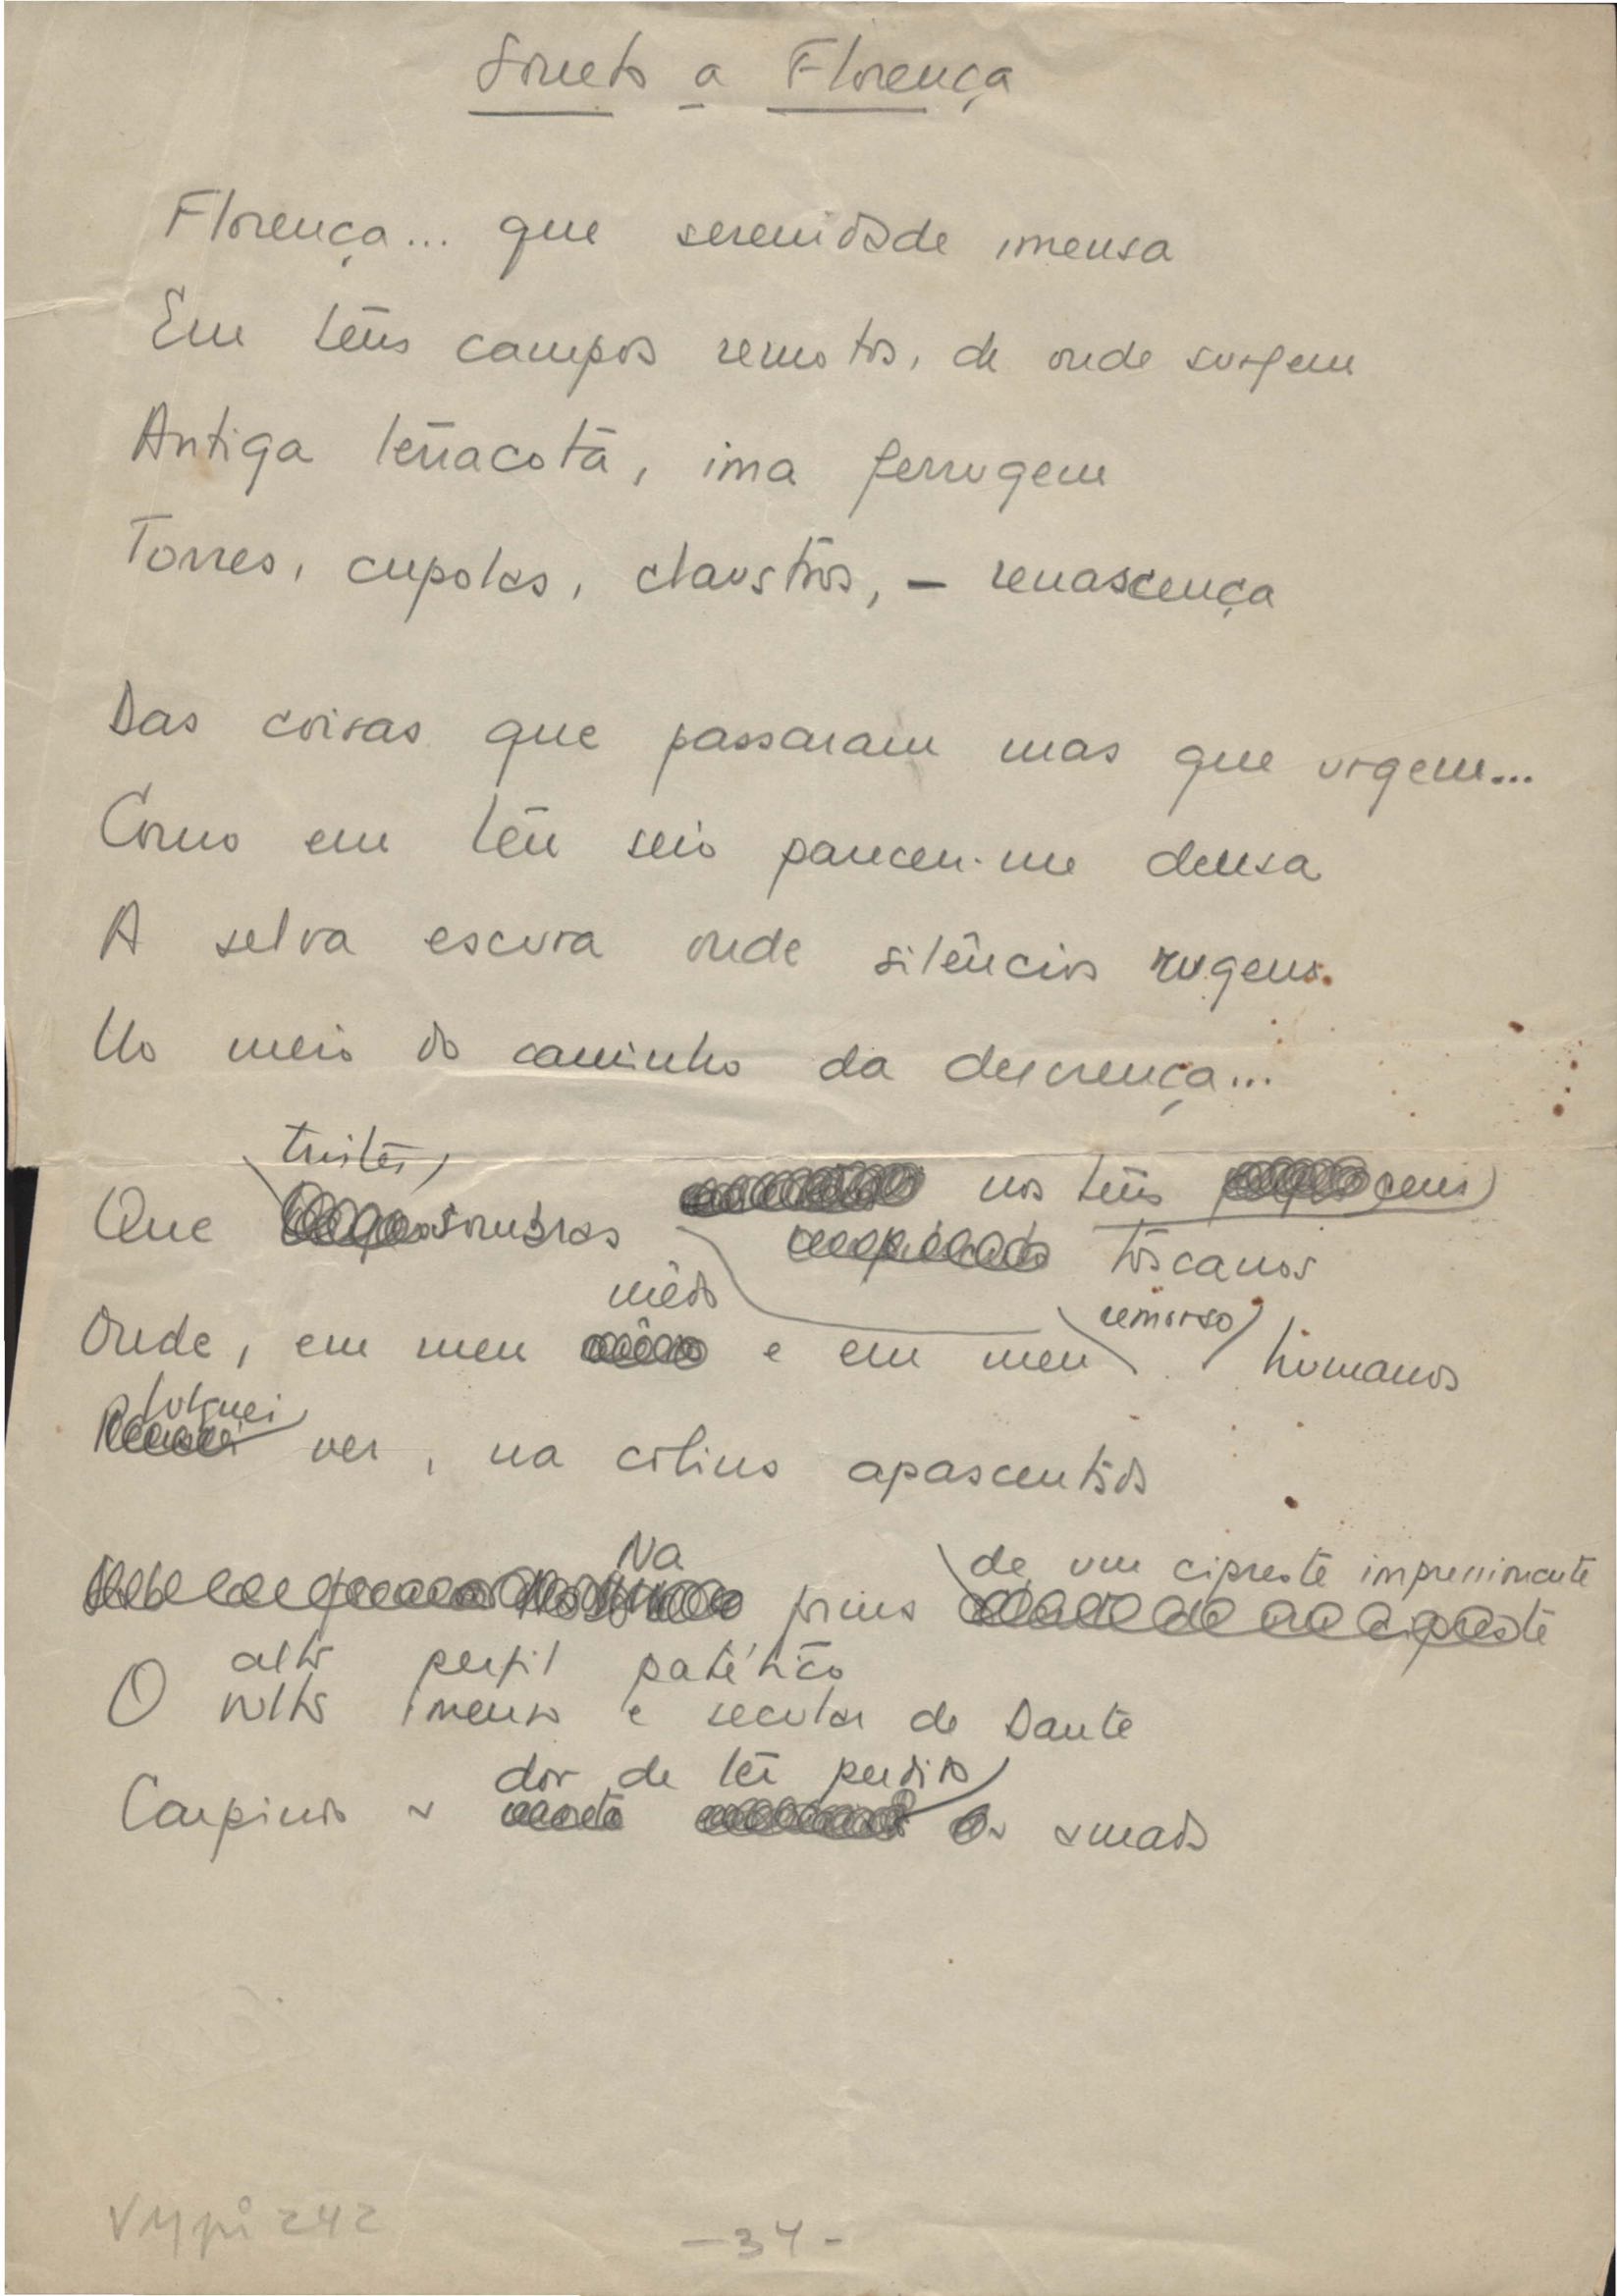 Soneto a Florença
Florença... que serenidade imensa
Em teus campos remotos, de onde surgem
Antiga terracota, ima ferrugem
Torres, cupolas, claustros, — renascença
Das coisas que passaram mas que urgem...
Como em teu seio pareceu-me densa
A selva escura onde silêncios rugem
No meio do caminho da descrença...
tristes
Que sombras nos teus ceus
toscanos
mêdo remorso
Onde, em meu e em meu humanos
Julguei
ver, na colina apascentado
Na de um cipreste impressionante
forma
alto perfil patético
O vulto imenso e secular de Dante
dor de ter perdido
Carpindo a o amado
VMpi 242
- 34 -